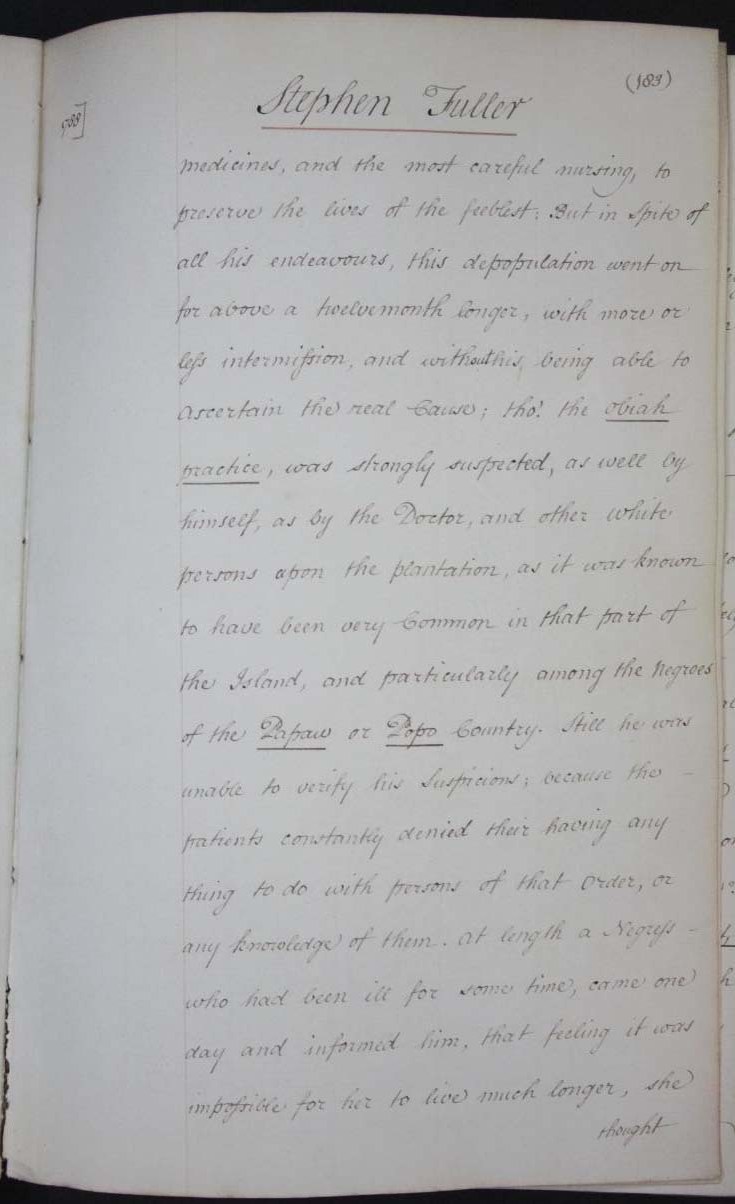 (183)
Stephen Fuller
1788]
medicines, and the most careful nursing, to
preserve the lives of the feeblest; But in Spite of
all his endeavours, this depopulation went on
for above a twelvemonth longer, with more or
less intermission, and without his being able to
ascertain the real Cause; tho' the obiah
practice, was strongly suspected, as well by
himself, as by the Doctor, and other white
persons upon the plantation, as it was known
to have been very Common in that part of
the Island, and particularly among the Negroes
of the Papaw or Popo Country. Still he was
unable to verify his Suspicions; because the -
patients constantly denied their having any
thing to do with persons of that order, or
any knowledge of them. At length a Negress -
who had been ill for some time, came one
day and informed him, that feeling it was
impossible for her to live much longer, she
thought